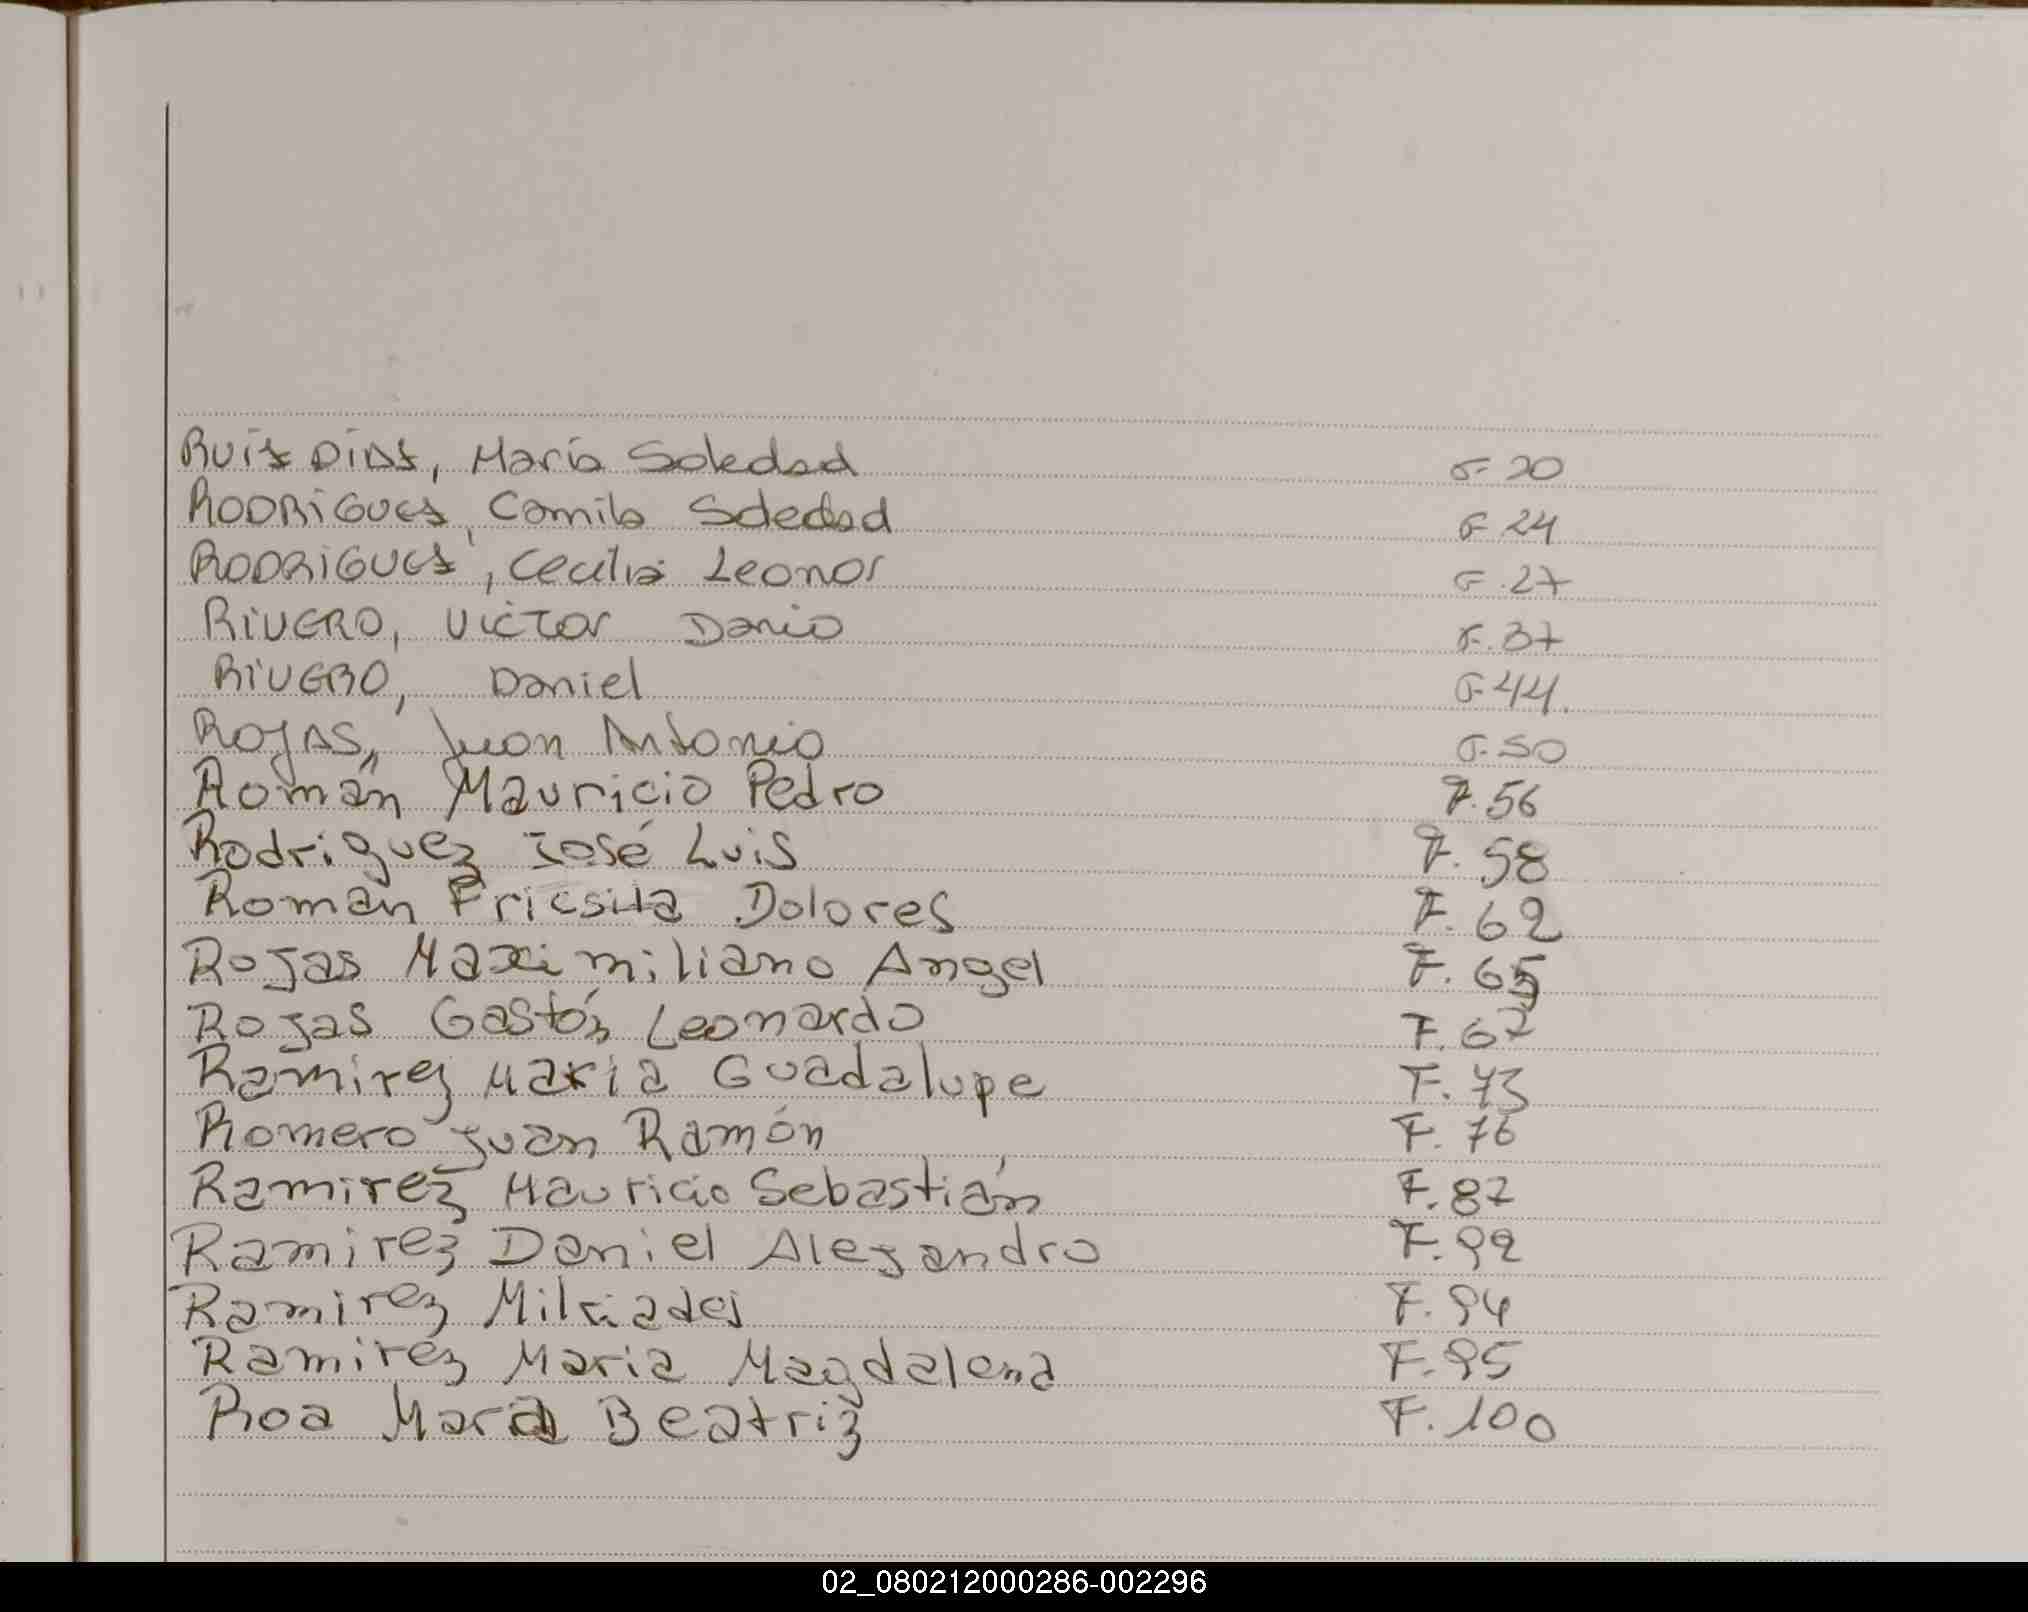 RUIZ DIAZ, María Soledad F. 20
RODRIGUEZ, Camila Soledad F. 24
RODRIGUEZ, Cecilia Leonor F. 27
RIVERO, Victor Dario F. 37
RIVERO, Daniel F. 44.
ROJAS, Juan Antonio F. 50
Román Mauricio Pedro F. 56
Rodriguez José Luis F. 58
Román Dolores F. 62
Rojas Maximiliano Angel F. 65
Rojas Gastón Leonardo F. 67
Ramirez Maria Guadalupe F. 73
Romero Juan Ramón F. 76
Ramirez Mauricio Sebastián F. 87
Ramirez Daniel Alejandro F. 92
Ramirez Milciades F. 94
Ramirez Maria Magdalena F. 95
Roa Maria Beatriz F. 100
02_080212000286-002296